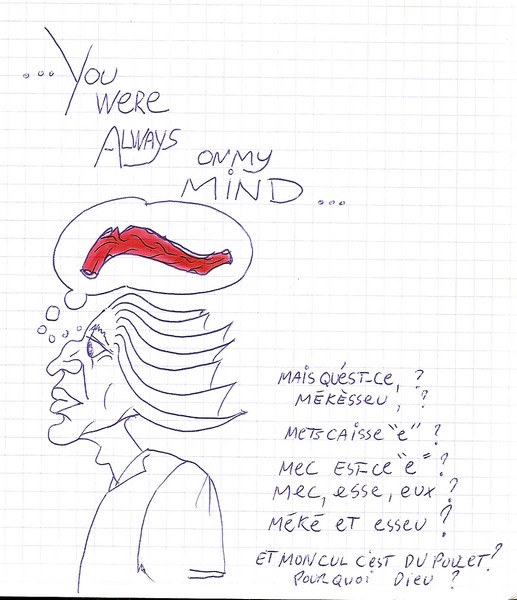 ...You
were
Always
on my
Mind...
Mais qu'est-ce, ?
Mékèsseu, ?
Mets caisse "e" ?
Mec est-ce "e" ?
Mec, esse, eux ?
Méké et esseu ?
Et mon cul c'est du poulet ?
Pourquoi Dieu ?